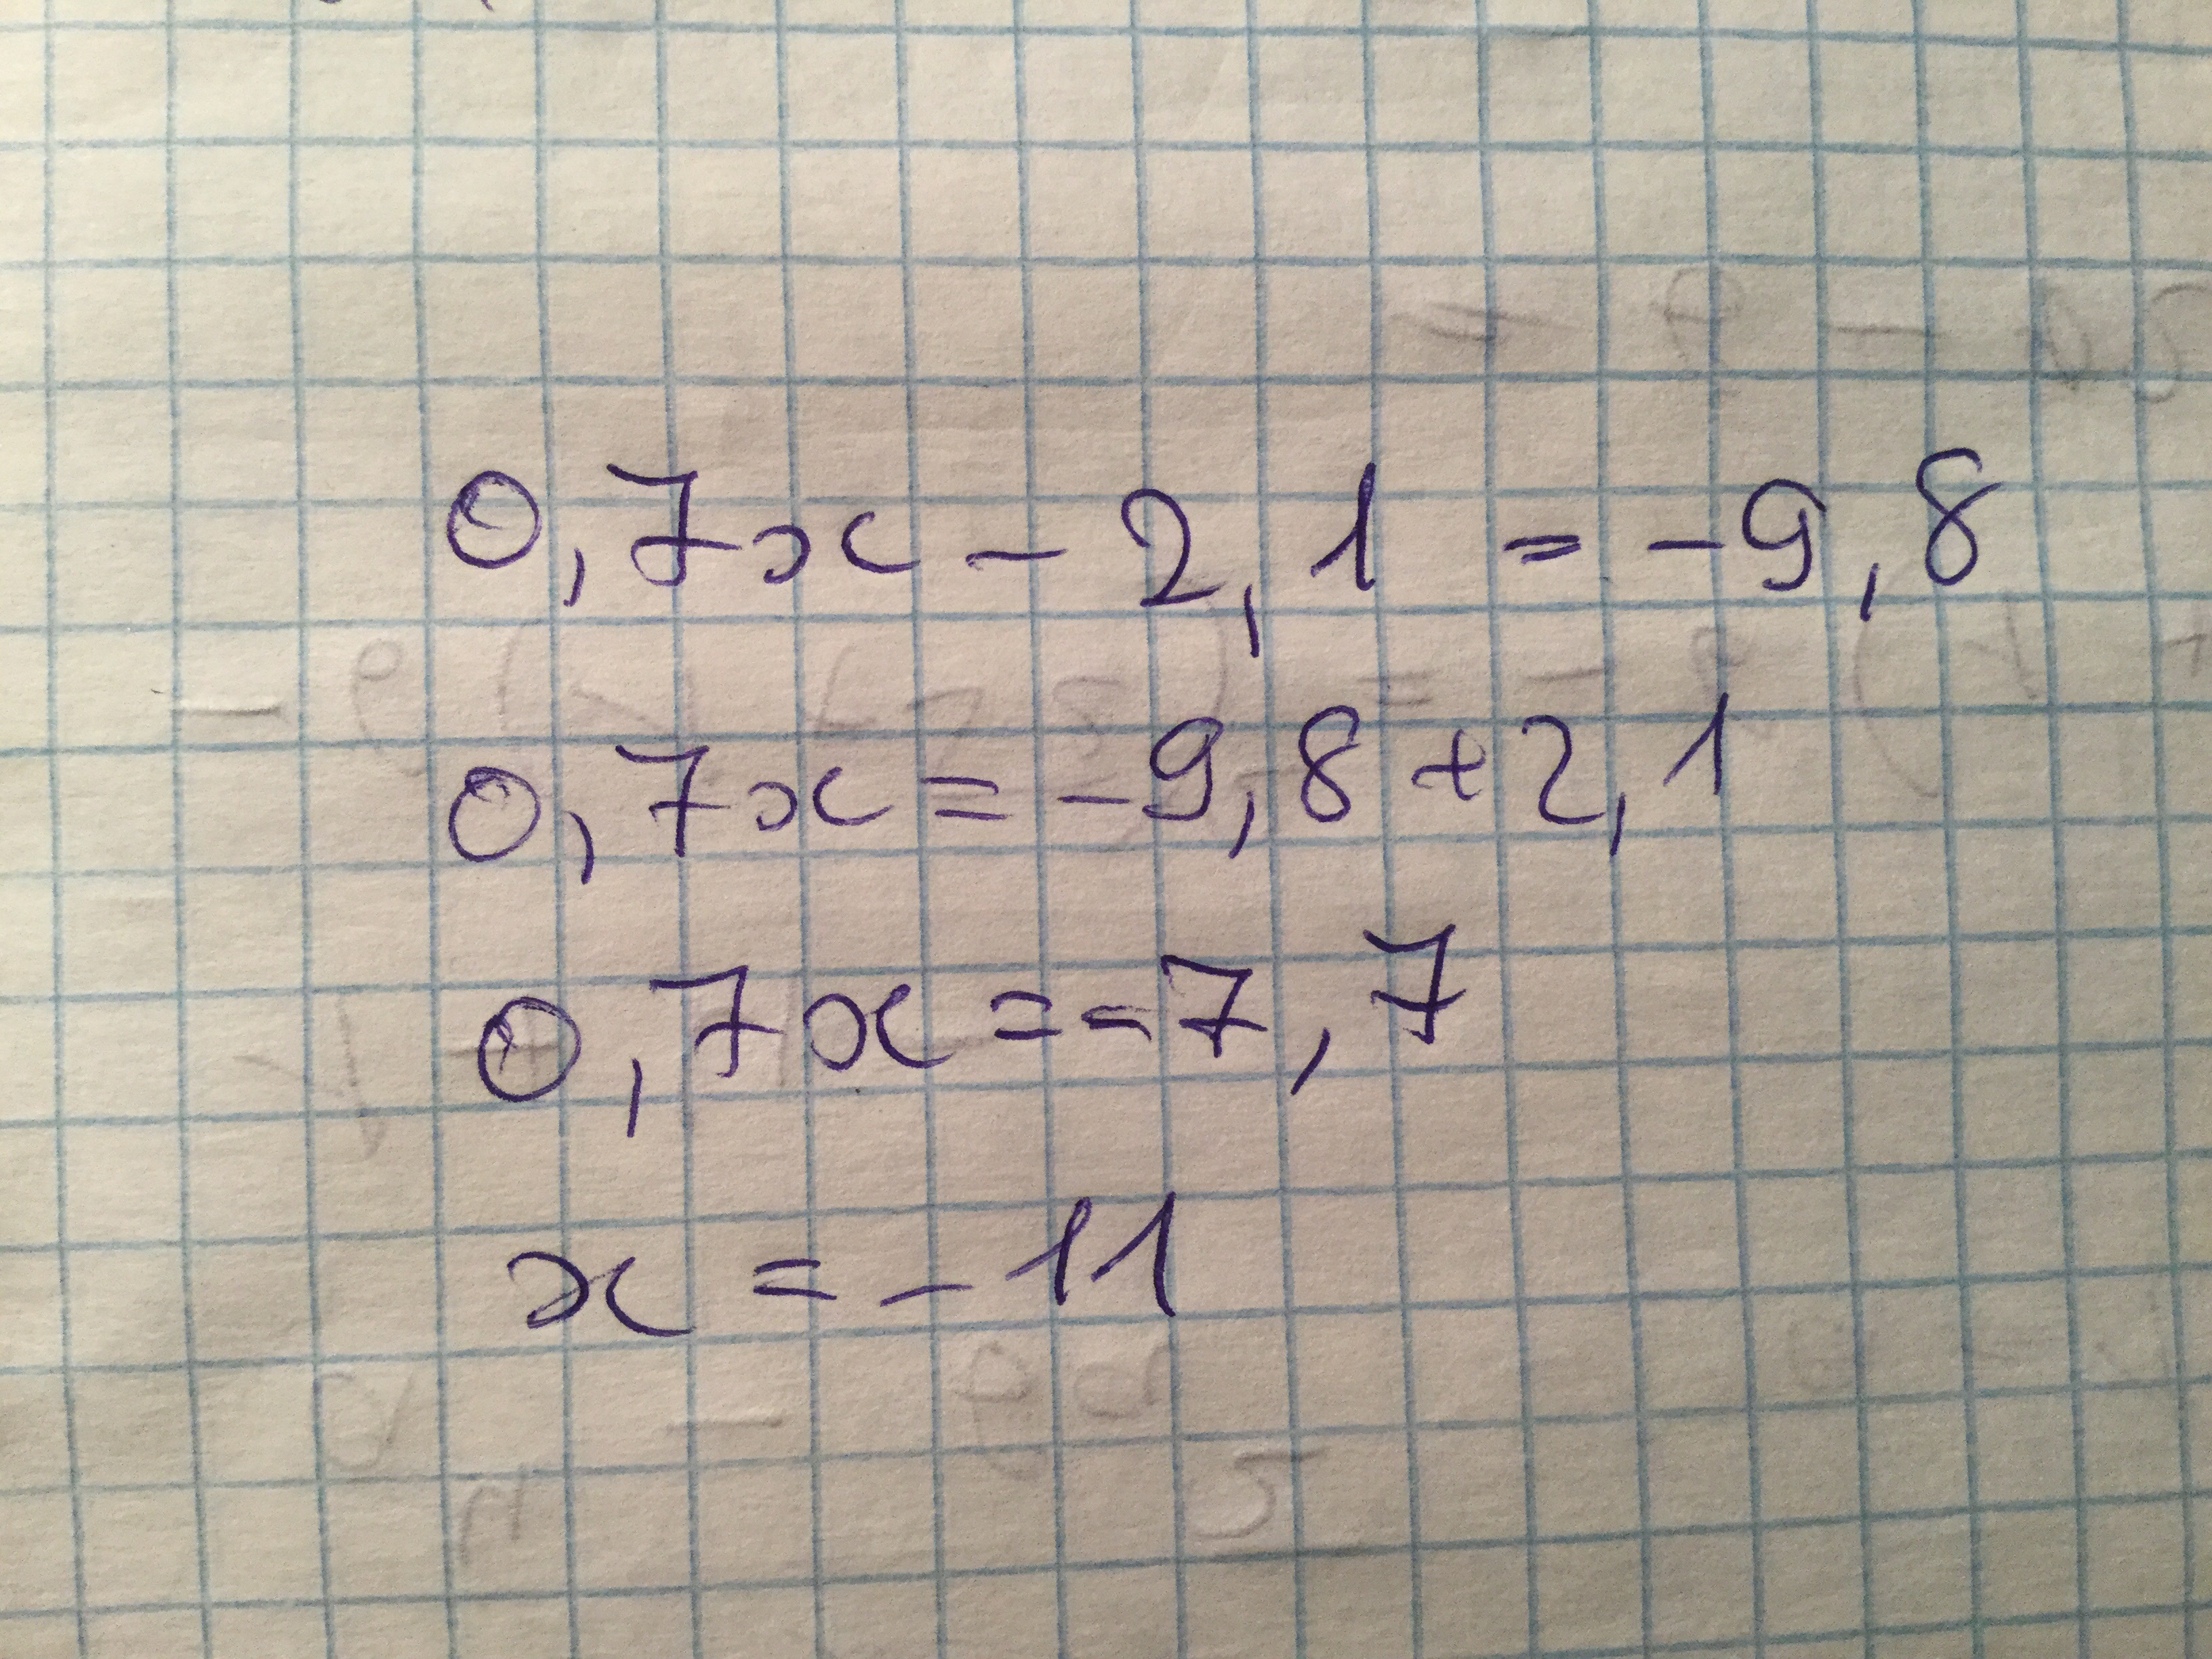 0,7x - 2,1 = -9,8
0,7x = -9,8 + 2,1
0,7x = -7,7
x = -11